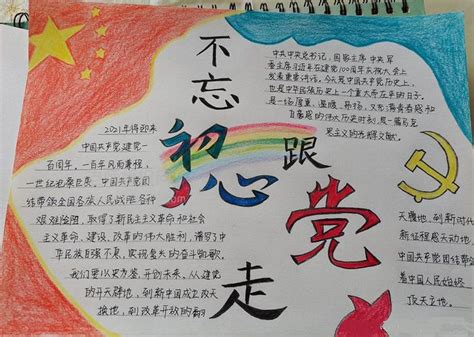 不忘
初心
跟
党
走
中共中央总书记，国家主席，中央军
委主席习近平在建党100周年庆祝大会上
发表重要讲话。今天是中国共产党历史上，
也是中华民族历史上一个重大而庄严的日子。
是一场厚重、温暖、昂扬，又充满青春感和
自豪感的伟大历史时刻，是一篇马克
思主义的光辉文献。
2021年将迎来
中国共产党建党一
百周年。一百年风雨兼程，
一世纪沧桑巨变。中国共产党团
结带领全国各族人民战胜各种
艰难险阻，取得了新民主主义革命和社会
主义革命、建设、改革的伟大胜利，谱写了中
华民族自强不息、顽强奋进的奋斗凯歌。
我们更以史为鉴，开创未来。从建党
的开天辟地，到新中国成立改天
换地，到改革开放的翻
天覆地，到新时代
新征程感天动地
中国共产党团结带领
着中国人民始终
顶天立地。